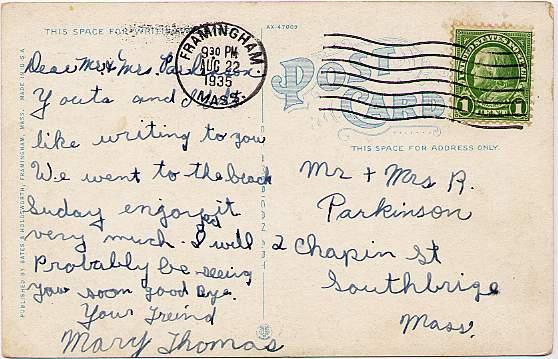 THIS SPACE FOR WRITING
AX-47009
FRAMINGHAM.
930 PM
AUG 22
1935
MASS.
UNITED STATES POSTAGE
1 1
CENT
POST
CARD
THIS SPACE FOR ADDRESS ONLY.
Dear Mr & Mrs. Parkinson
and I
like writing to you
We went to the beach
Suday engoyed it
very much. I will
Probably be seeing
you soon good bye.
Your Freind
Mary Thomas
Mr + Mrs R.
Parkinson
2 Chapin St
Southbrige
Mass.
PUBLISHED BY BATES & HOLDSWORTH, FRAMINGHAM, MASS. MADE IN U.S.A.